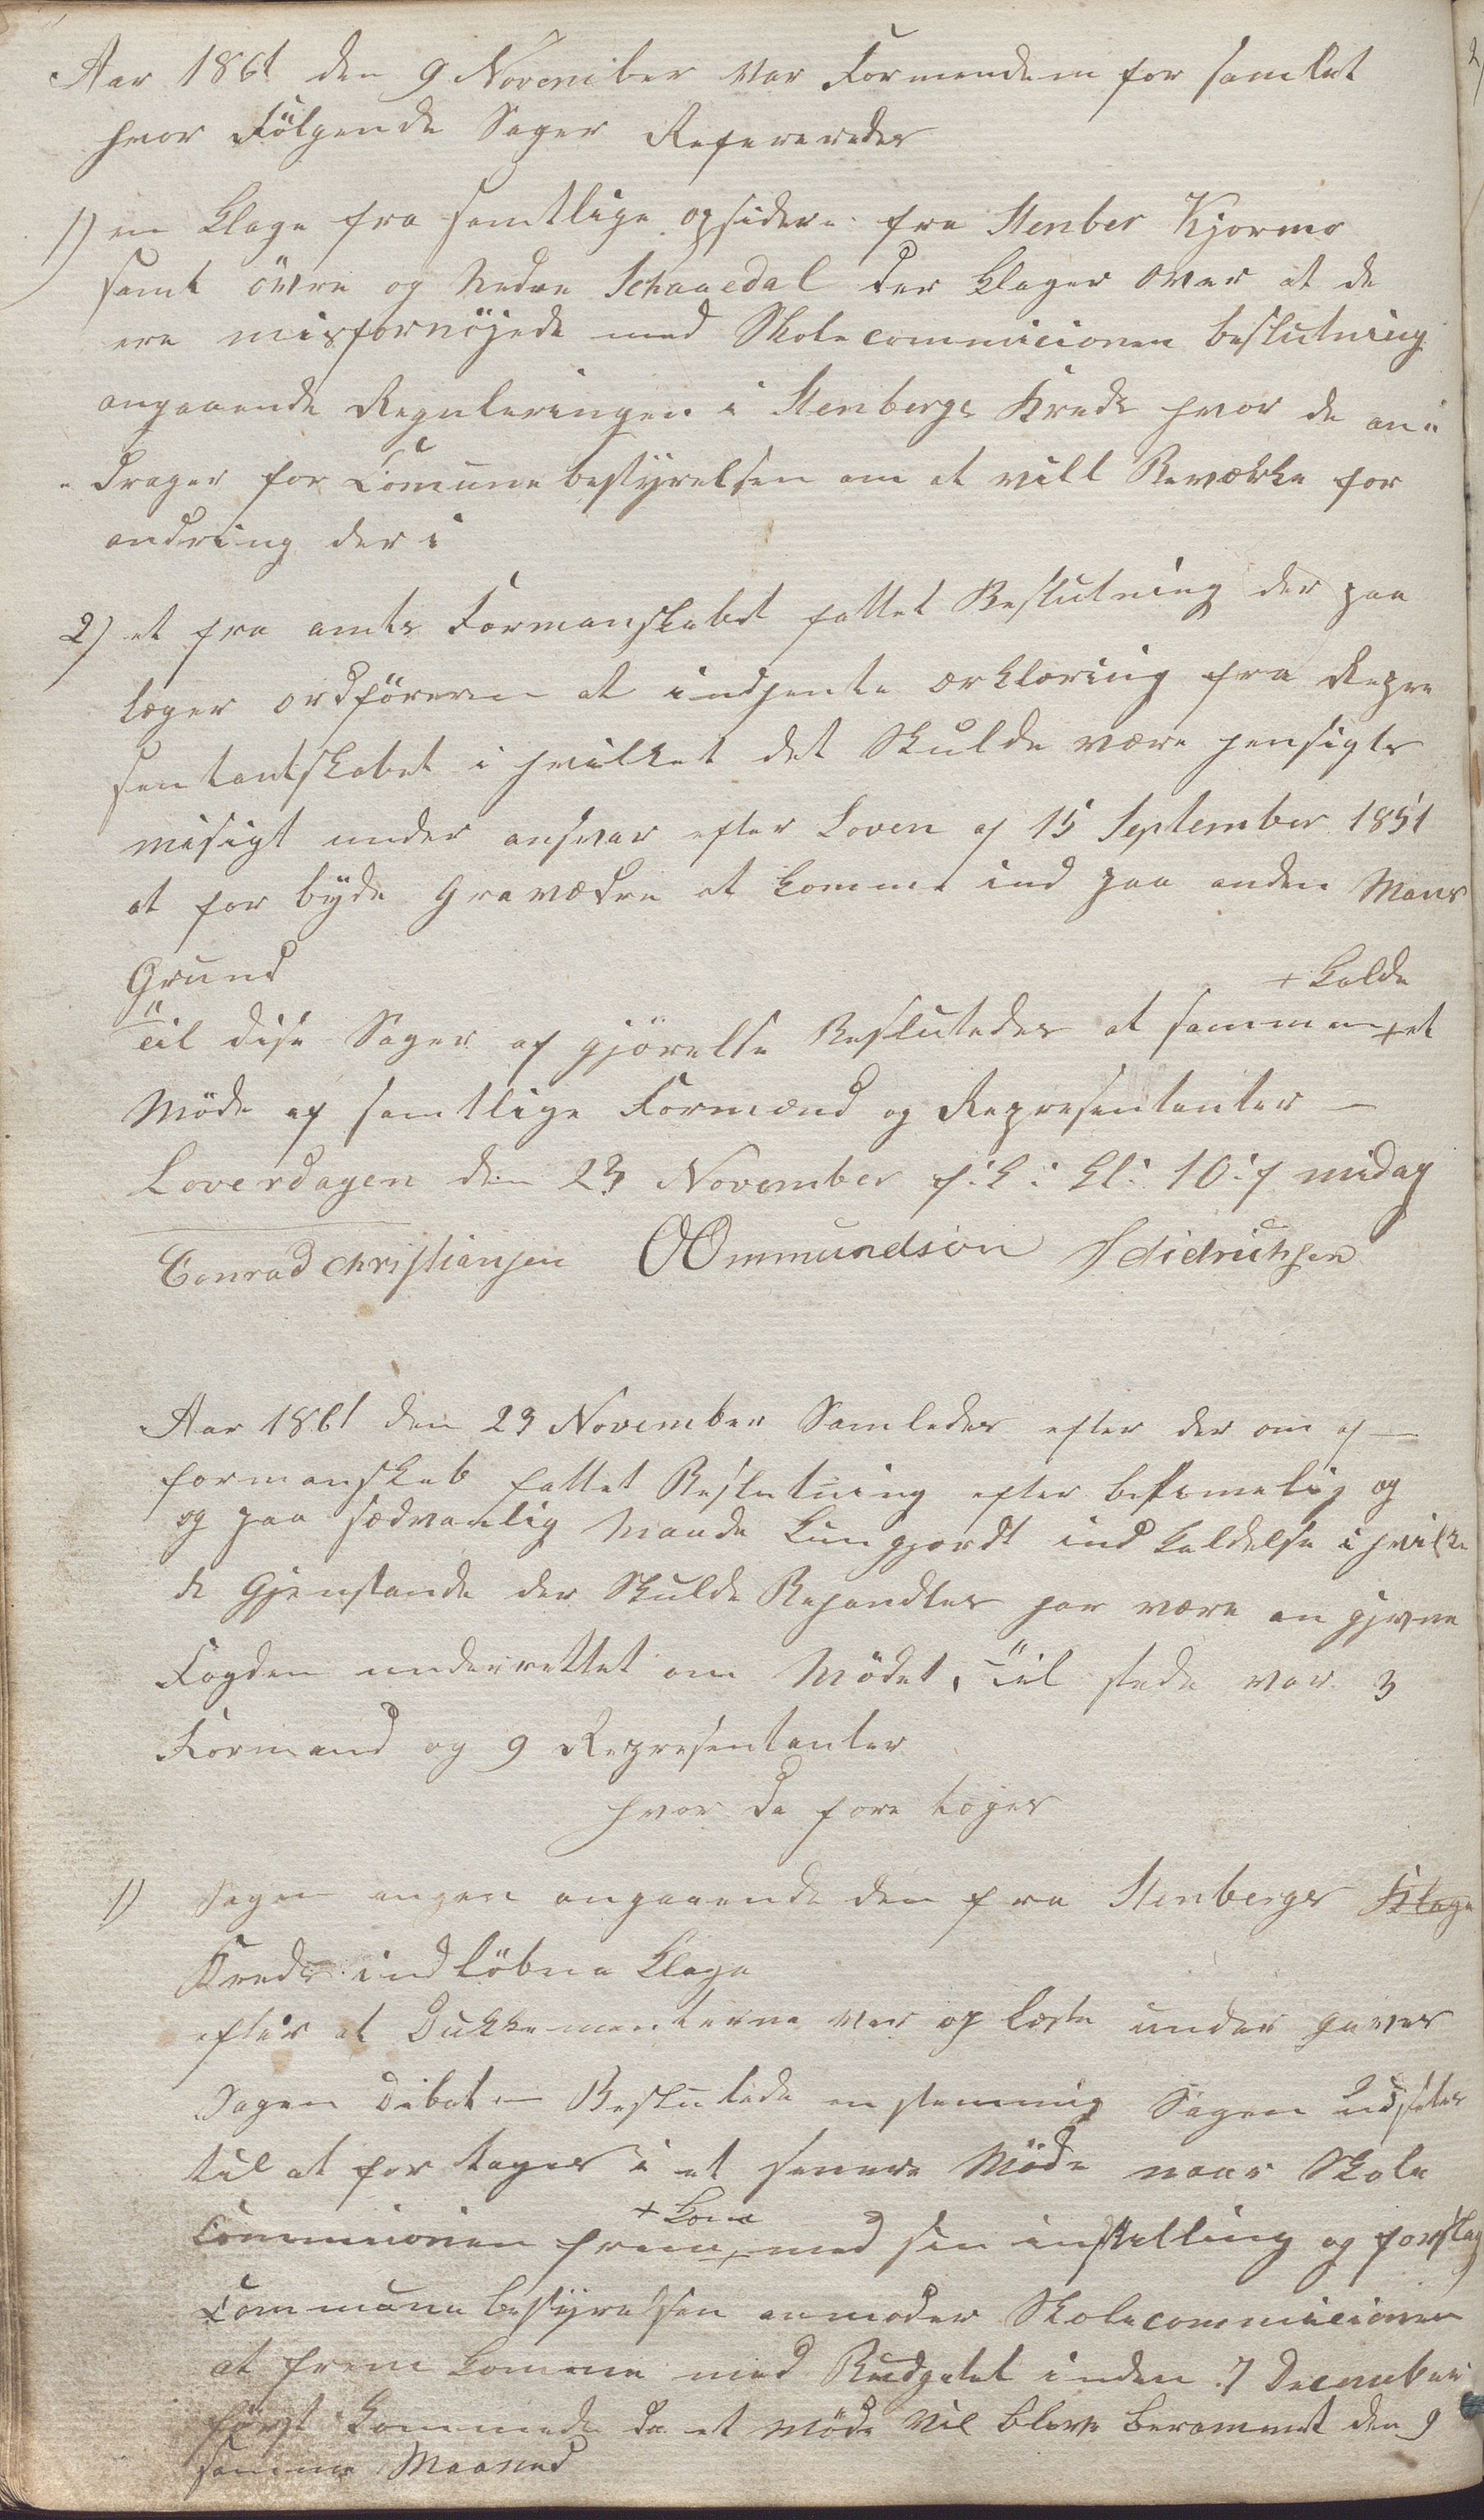 Aar 1861 den 9 November var Formendern for samlet
hvor Fölgende Sager Refereredes
1) en Klage fra samtlige opsidere fra Stenber Kjormo
samt övre og Nedre Schaaedal der klager over at de
ere misfornöjede med Skolecommicionen beslutning
angaaende Reguleringen i Stenbergs Kreds hvor de an„
„drager for Comunebestÿrelsen om at vill Beværke for
andring der i
2) et fra amts Formanskabet fattet Beslutning der paa
læger ordföreren at indhente ærklæring fra Repre
sentantskabet i hvilket det Skulde være hensigts
misigt under ansvar efter Loven af 15 September 1851
at for bÿde Gravædre at komme ind paa anden Mans
Grund
Til dise Sager af gjörelse Besluttedes at sammen + et
+ kalde
Möde af samtlige Formænd og Representanter —
Loverdagen den 23 November f: k: kl: 10: f midag
Conrad Christiansen OOmmundsön S didrichsen
Aar 1861 den 23 November Samledes efter der om af —
formanskab fattet Beslutning efter bestemelig og
og paa sædvanlig Maade kungjordt ind kaldelse i hvilke
de Gjenstande der Skulde Behandles har være an givne
Fogden underrettet om Mödet, Til stede var 3
Formænd og 9 Representanter
hvor da fore toges
1) Sagen angaaende den fra Stenbergs Klage
Kreds indlöbne Klage
efter at Dukkumenterne var op læste under gaves
Sagen Dibat — Besluttede enstemmig Sagen Udsettes
til at for tages i et senere Möde naar Skole
Commicionen frem + med sin instilling og forslag
+ kom
Commune bestÿrelsen anmoder Skolecommicionen
at frem komme med Budgetet inden 7 December
först kommende da et Möde vil blive berammet den 9
samme Maaned